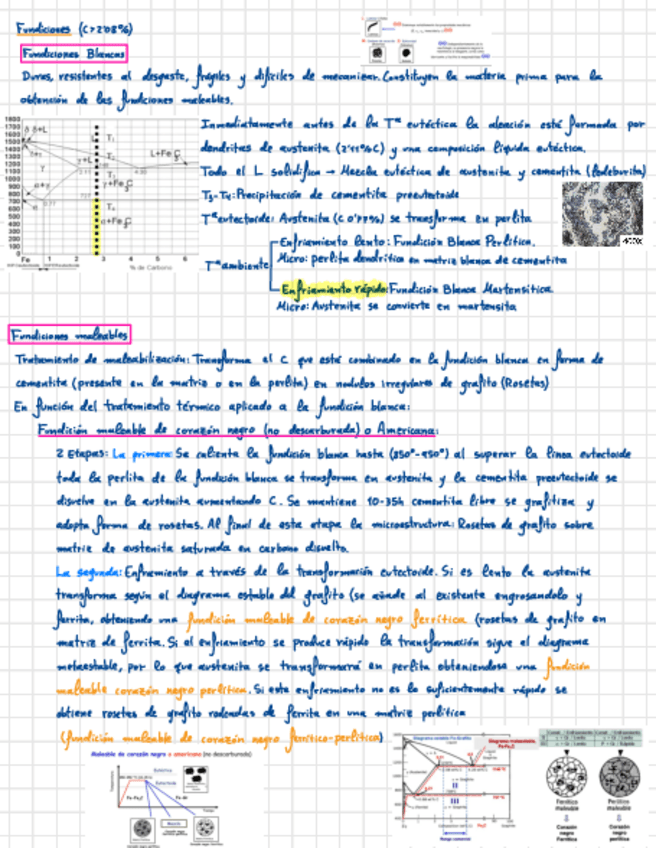 Fundiciones (C>2'08%)
Fundiciones Blancas
Duras, resistentes al desgaste, frágiles y difíciles de mecanizar. Constituyen la materia prima para la
obtención de las fundiciones maleables.
Inmediatamente antes de la Tª eutéctica la aleación está formada por
dendritas de austenita (2'11%C) y una composición líquida eutéctica.
Todo el L solidifica → Mezcla eutéctica de austenita y cementita (ledeburita)
T3-T4: Precipitación de cementita proeutectoide
Tª eutectoide: Austenita (C 0'77%) se transforma en perlita
Tª ambiente
Enfriamiento lento: Fundición Blanca Perlítica.
Micro: perlita dendrítica en matriz blanca de cementita
Enfriamiento rápido: Fundición Blanca Martensítica
Micro: Austenita se convierte en martensita
400x
1800
1700
1600
1500
1400
1300
1200
1100
1000
900
800
700
600
500
400
300
200
100
0
δ δ+L
L+Fe3C
γ+L
γ
γ+Fe3C
α+γ
α
α+Fe3C
T1
T2
T3
T4
2.11
4.30
0.77
Fe 1 2 3 4 5 6
% de Carbono
Fundiciones maleables
Tratamiento de maleabilización: Transforma el C que está combinado en la fundición blanca en forma de
cementita (presente en la matriz o en la perlita) en nodulos irregulares de grafito (Rosetas)
En función del tratamiento térmico aplicado a la fundición blanca:
Fundición maleable de corazón negro (no descarburada) o Americana:
2 Etapas: La primera: Se calienta la fundición blanca hasta (850°-950°) al superar la linea eutectoide
toda la perlita de la fundición blanca se transforma en austenita y la cementita proeutectoide se
disuelve en la austenita aumentando C. Se mantiene 10-35h cementita libre se grafitiza y
adopta forma de rosetas. Al final de esta etapa la microestructura: Rosetas de grafito sobre
matriz de austenita saturada en carbono disuelto.
La segunda: Enfriamiento a través de la transformación eutectoide. Si es lento la austenita
transforma según el diagrama estable del grafito (se añade al existente engrosandolo y
ferrita, obteniendo una fundición maleable de corazón negro ferrítica (rosetas de grafito en
matriz de ferrita. Si el enfriamiento se produce rápido la transformación sigue el diagrama
metaestable, por lo que austenita se transformará en perlita obteniendose una fundición
maleable corazón negro perlítica. Si este enfriamiento no es lo suficientemente rápido se
obtiene rosetas de grafito rodeadas de ferrita en una matriz perlítica
(fundición maleable de corazón negro ferrítico-perlítica)
Maleable de corazón negro o americana (no descarburada)
Ferrítica
maleable
Perlítica
maleable
Corazón
negro
Ferrítica
Corazón
negro
perlítica